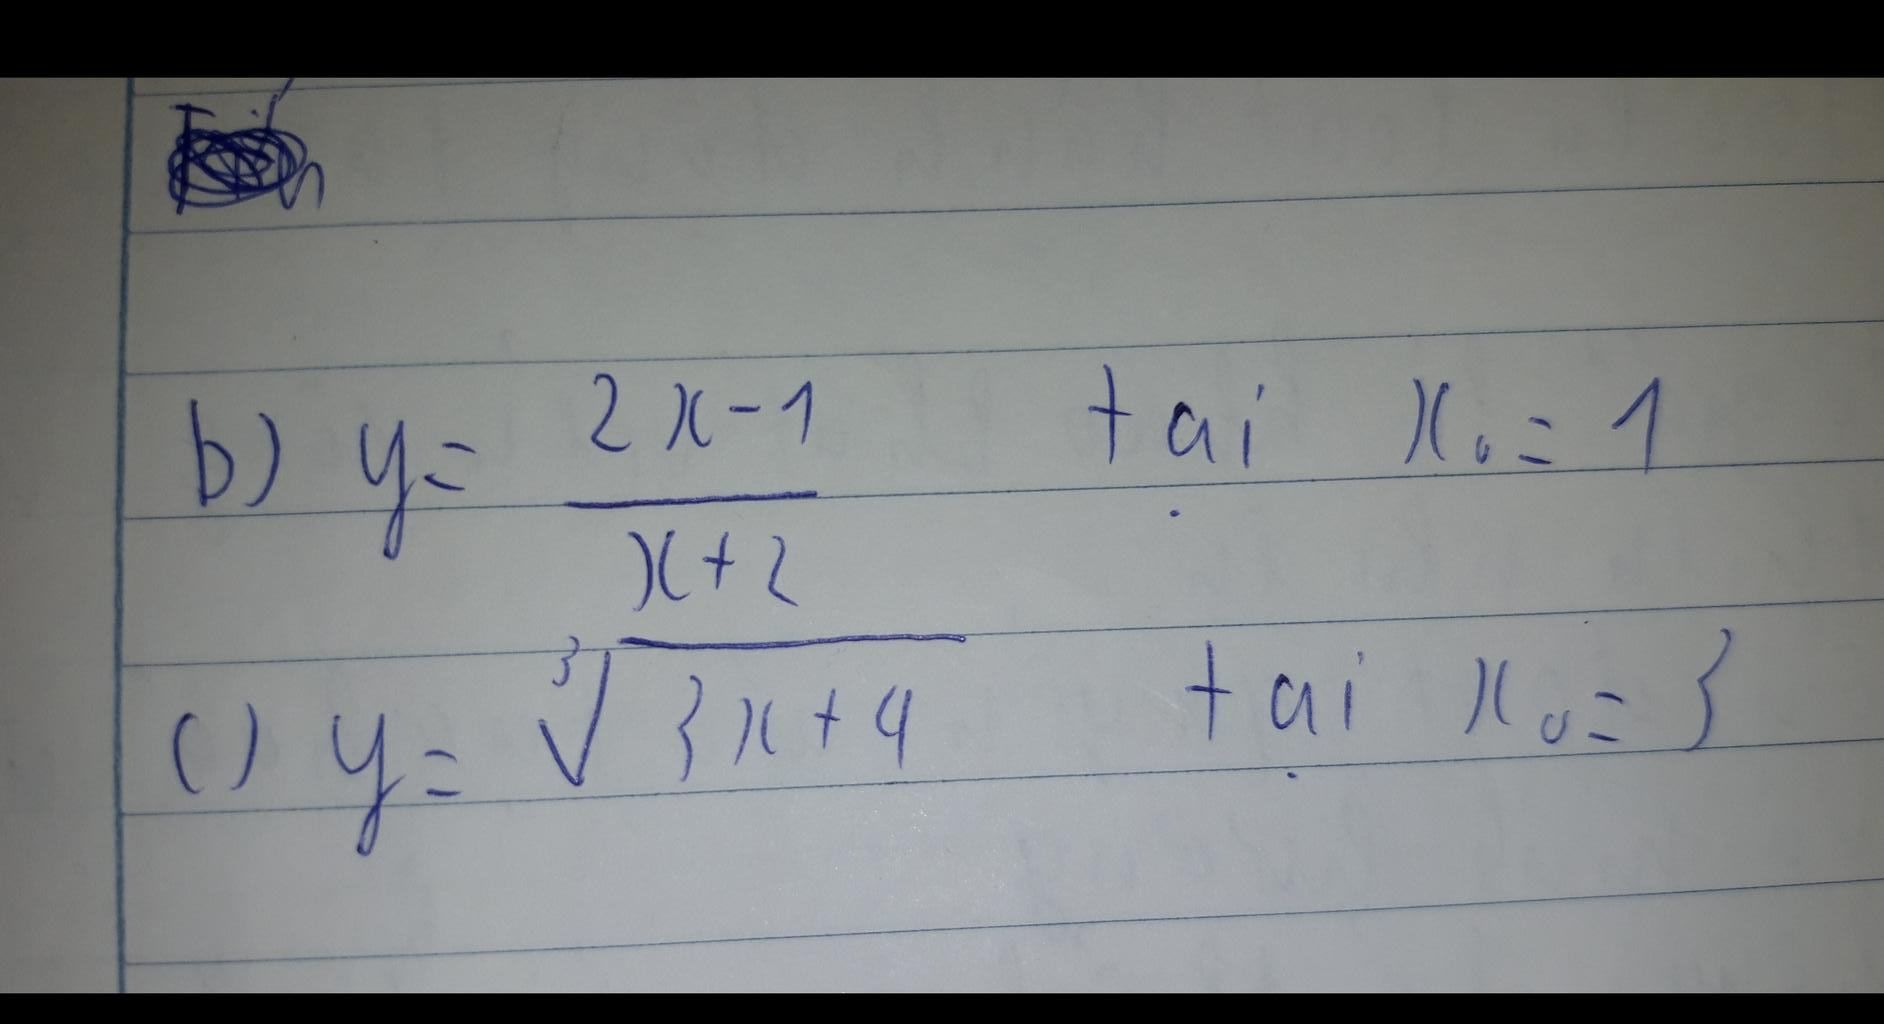 b) y = \frac{2x-1}{x+2} tại x₀ = 1
c) y = ∛(3x+4) tại x₀ = 3